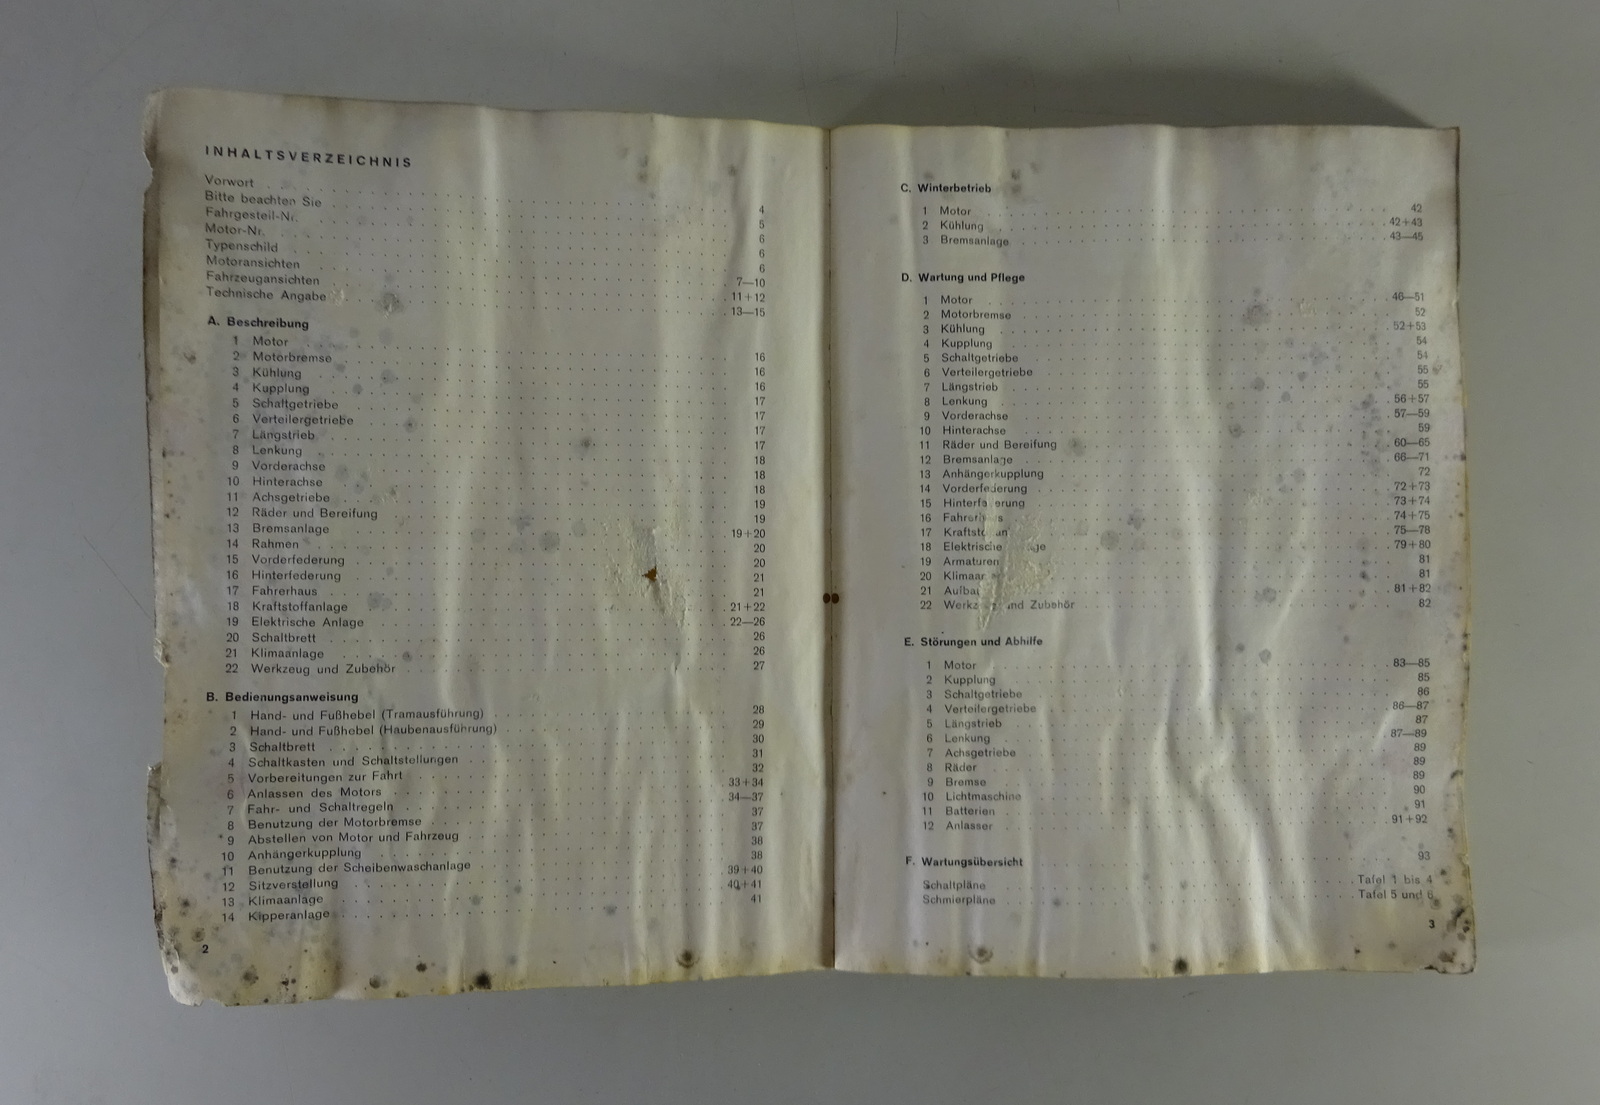 INHALTSVERZEICHNIS
Vorwort 4
Bitte beachten Sie 5
Fahrgestell-Nr. 6
Motor-Nr. 6
Typenschild 6
Motoransichten 7—10
Fahrzeugansichten 11+12
Technische Angabe 13—15
A. Beschreibung
1 Motor 16
2 Motorbremse 16
3 Kühlung 16
4 Kupplung 17
5 Schaltgetriebe 17
6 Verteilergetriebe 17
7 Längstrieb 17
8 Lenkung 18
9 Vorderachse 18
10 Hinterachse 18
11 Achsgetriebe 19
12 Räder und Bereifung 19
13 Bremsanlage 19+20
14 Rahmen 20
15 Vorderfederung 20
16 Hinterfederung 21
17 Fahrerhaus 21
18 Kraftstoffanlage 21+22
19 Elektrische Anlage 22—26
20 Schaltbrett 26
21 Klimaanlage 26
22 Werkzeug und Zubehör 27
B. Bedienungsanweisung
1 Hand- und Fußhebel (Tramausführung) 28
2 Hand- und Fußhebel (Haubenausführung) 29
3 Schaltbrett 30
4 Schaltkasten und Schaltstellungen 31
5 Vorbereitungen zur Fahrt 32
6 Anlassen des Motors 33+34
7 Fahr- und Schaltregeln 34—37
8 Benutzung der Motorbremse 37
9 Abstellen von Motor und Fahrzeug 37
10 Anhängerkupplung 38
11 Benutzung der Scheibenwaschanlage 38
12 Sitzverstellung 39+40
13 Klimaanlage 40+41
14 Kipperanlage 41
2
C. Winterbetrieb
1 Motor 42
2 Kühlung 42+43
3 Bremsanlage 43—45
D. Wartung und Pflege
1 Motor 46—51
2 Motorbremse 52
3 Kühlung 52+53
4 Kupplung 54
5 Schaltgetriebe 54
6 Verteilergetriebe 55
7 Längstrieb 55
8 Lenkung 56+57
9 Vorderachse 57—59
10 Hinterachse 59
11 Räder und Bereifung 60—65
12 Bremsanlage 66—71
13 Anhängerkupplung 72
14 Vorderfederung 72+73
15 73+74
16 74+75
17 75—78
18 Elektrische 79+80
19 Armaturen 81
20 81
21 81+82
22 und Zubehör 82
E. Störungen und Abhilfe
1 Motor 83—85
2 Kupplung 85
3 Schaltgetriebe 86
4 Verteilergetriebe 86—87
5 Längstrieb 87
6 Lenkung 87—89
7 Achsgetriebe 89
8 Räder 89
9 Bremse 89
10 Lichtmaschine 90
11 Batterien 91
12 Anlasser 91+92
F. Wartungsübersicht 93
Schaltpläne Tafel 1 bis 4
Schmierpläne Tafel 5 und 6
3